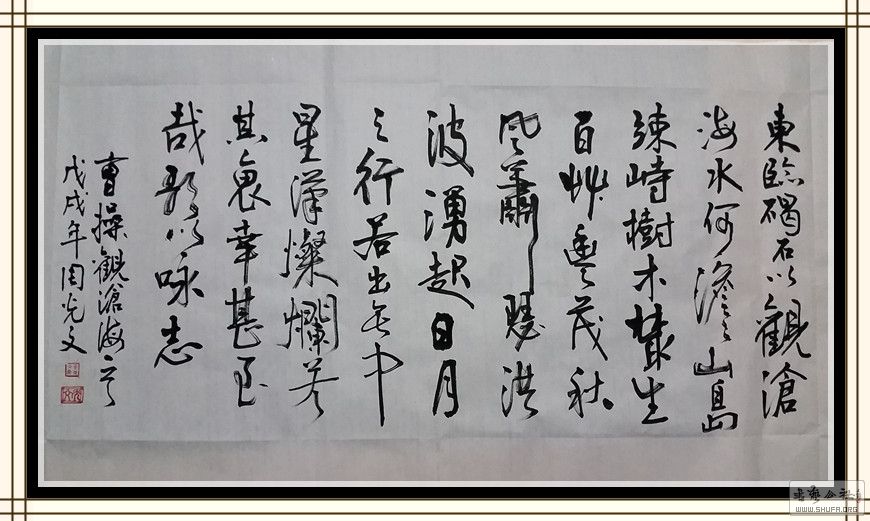 東臨碣石以觀滄
海水何澹々山島
竦峙樹木叢生
百艸豐茂秋
風蕭瑟洪
波湧起日月
之行若出其中
星漢燦爛若
其裏幸甚至
哉歌以咏志
曹操觀滄海一首
戊戌年周光文
书艺公社
WWW.SHUFA.ORG